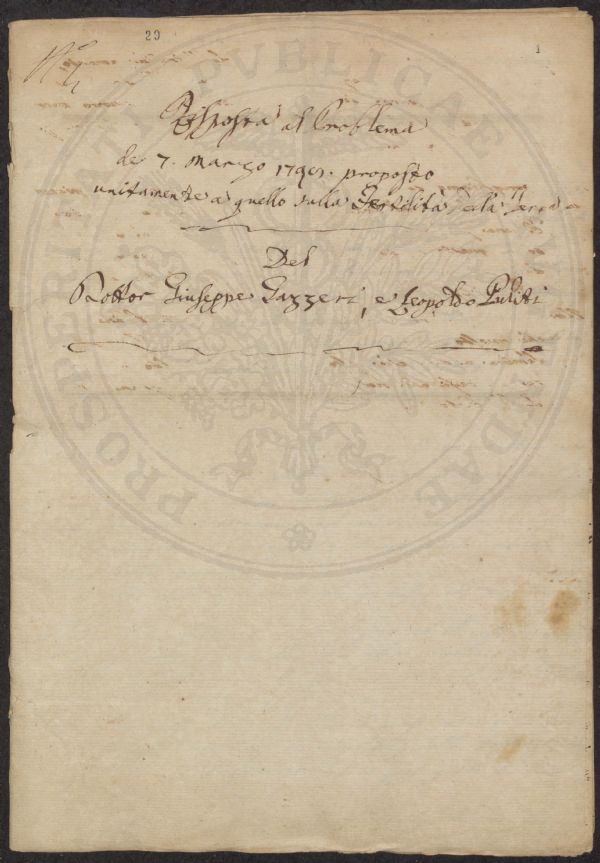 29
1
Risposta al Problema
de 7. Marzo 1791. proposto
unitamente a quello sulla Fertilità della Terra
Del
Dottor Giuseppe Gazzeri, e Leopoldo Puliti
PROSPERITATI PUBLICAE AUGENDAE